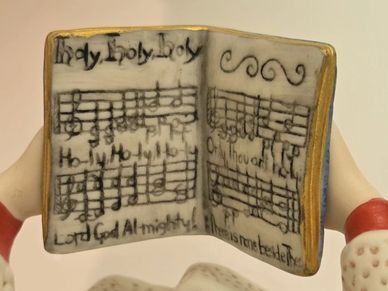 Holy, Holy, Holy
Holy Holy Holy
Lord God Almighty!
Only Thou art
There is none beside Thee